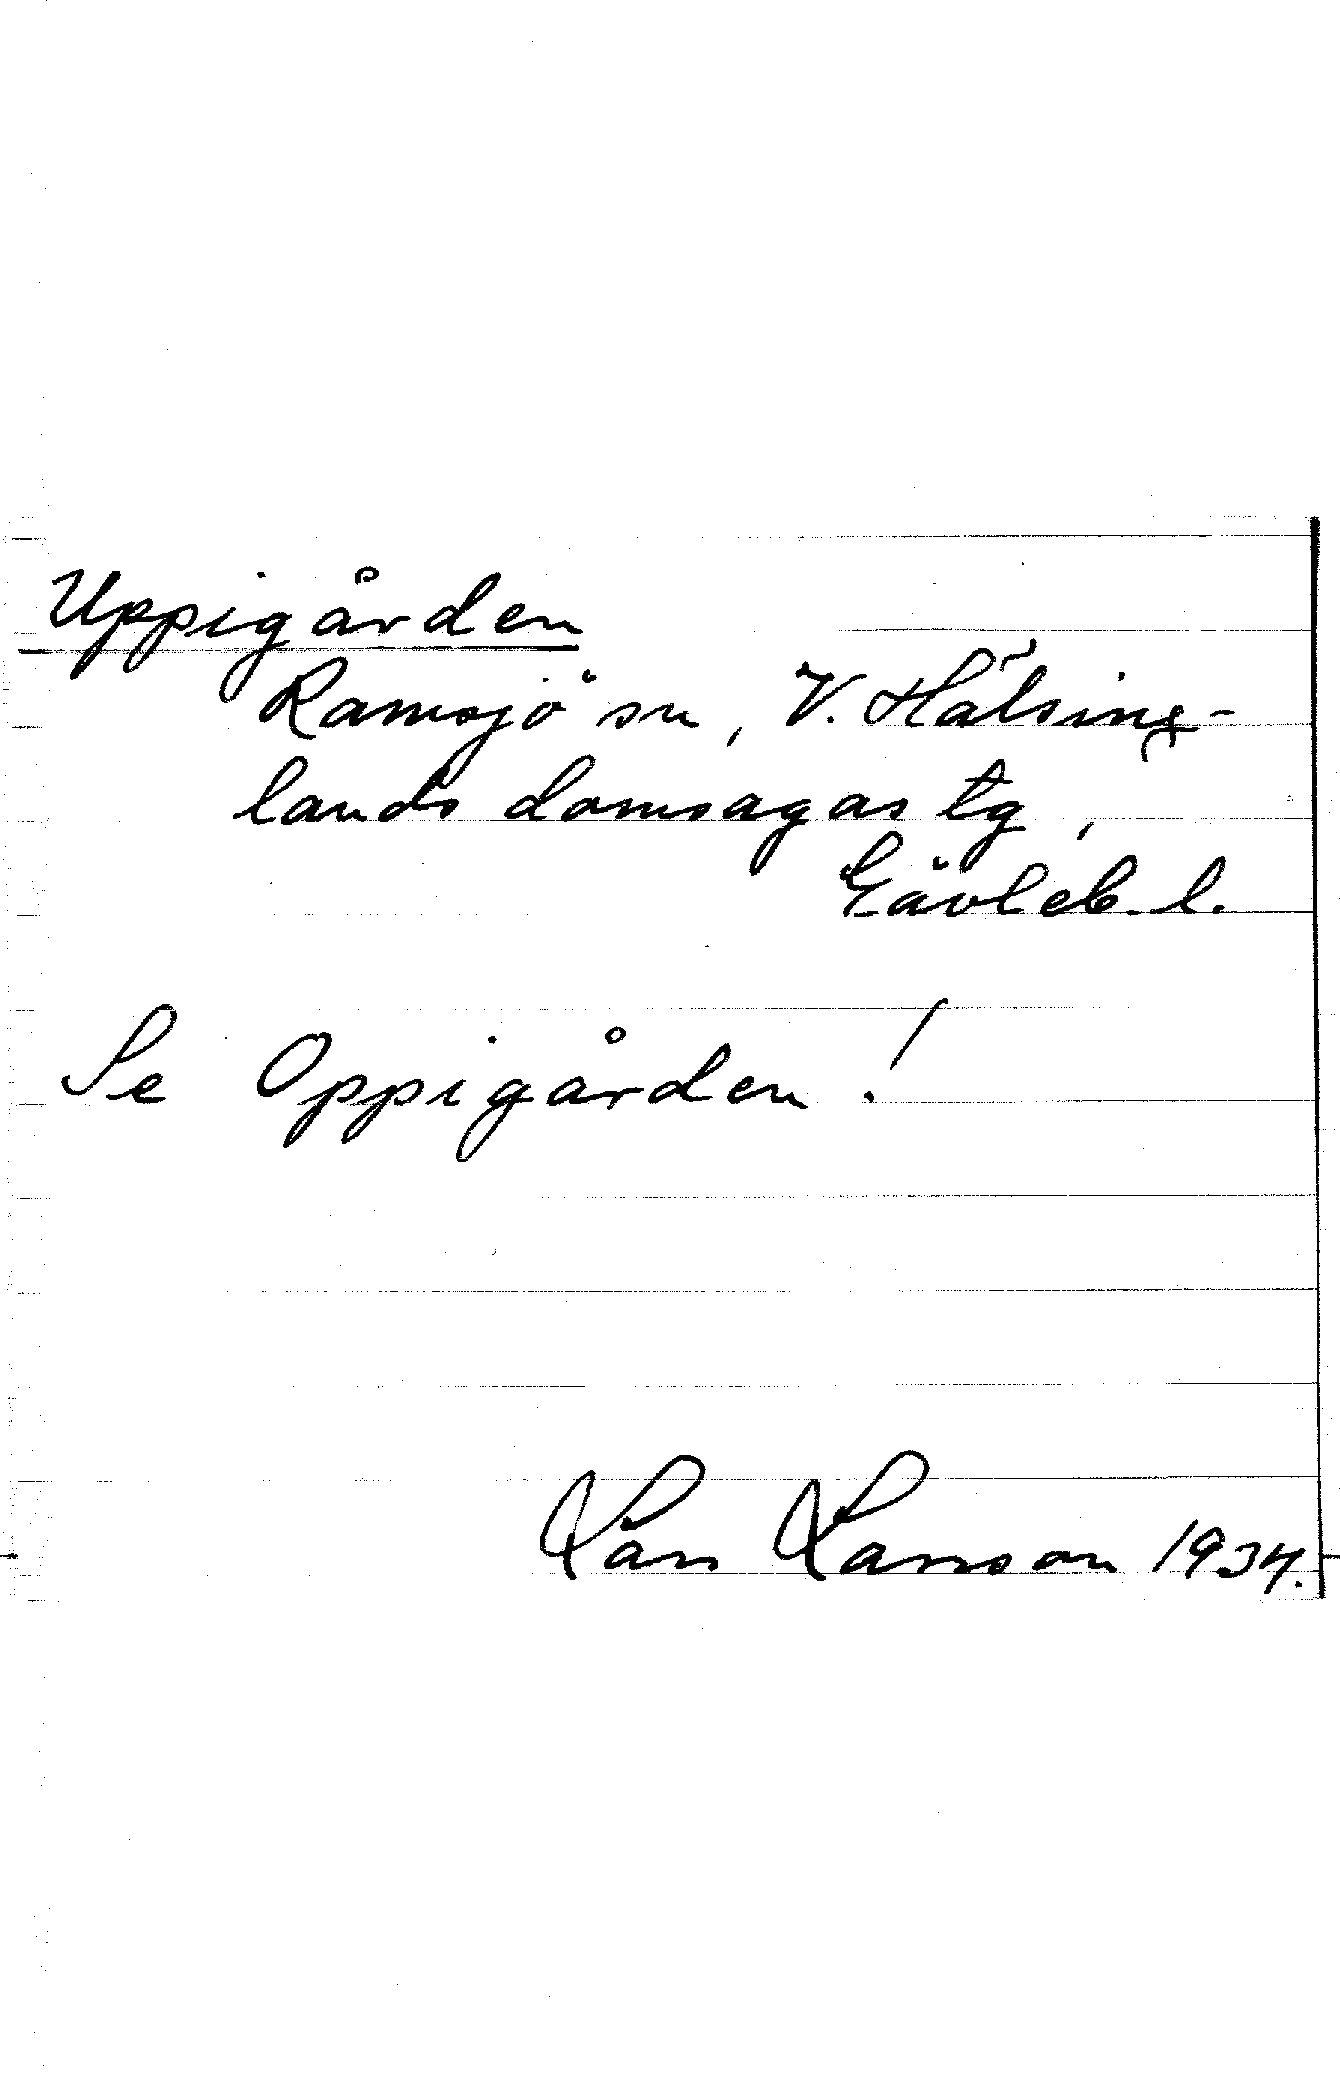 Uppigården
Ramsjö sn, V. Hälsing-
lands domsagas tg,
Gävleb. l.
Se Oppigården!
Lars Larsson 1934.